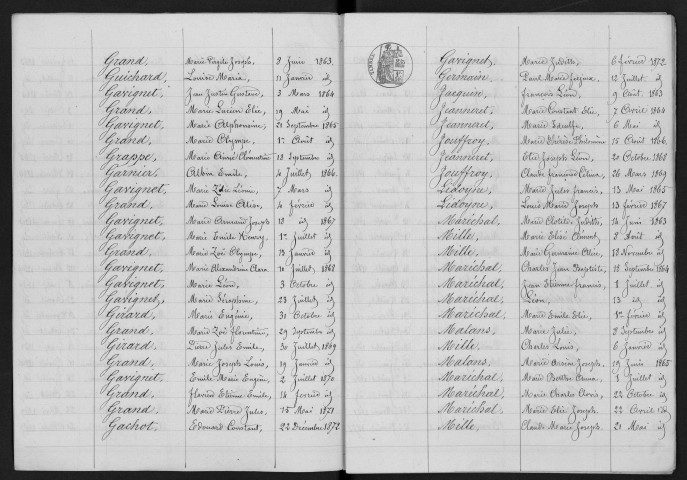 Grand, Marie Virgile Joseph, 8 Juin 1863.
Guichard, Louise Maria, 11 Janvier id
Gavignet, Jean Justin Gustave, 3 Mars 1864
Grand, Marie Lucien Elie, 19 Mai id
Gavignet, Marie Alphonsine, 21 Septembre 1865
Grand, Marie Olympe, 1er Août id
Grappe, Marie Aimé 13 Septembre id
Garnier, Albin Emile, 4 Juillet 1866.
Gavignet, Marie Zélie Léonie, 7 Mars id
Grand, Marie Louise Elise, 4 février id
Gavignet, Marie Armand Joseph 18 id 1867
Gavignet, Marie Emile Henry, 1er Juillet id
Grand, Marie Zoé Olympe, 13 Janvier id
Gavignet, Marie Alexandrine Clara 10 Juillet, 1868
Gavignet, Marie Léon, 3 Octobre id
Gavignet, Marie Séraphine, 23 Juillet id
Girard, Marie Eugénie, 31 Octobre id
Grand, Marie Zoé Florentine, 29 Septembre id
Girard, Pierre Jules Emile, 30 Juillet 1869
Grand, Marie Joseph Louis, 19 Janvier id
Gavignet, Emile Marie Eugène, 2 Juillet 1870
Grand, Etienne Emile, 14 février id
Grand, Marie Pierre Jules, 15 Mai 1871
Gachot, Edouard Constant, 22 Décembre 1872
Gavignet, Marie 6 février 1872
Germain, Paul Marie 12 Juillet id
Jacquin, François Léon, 9 Août 1863
Jeanneret, Marie Constant Elie, 7 Avril 1864
Jeanneret, Marie 6 Mai id
Jouffroy, Marie Thérèse Philomène 15 Août 1866
Jeanneret, Elie Joseph Léon, 20 Octobre 1868
Jouffroy, Claude François 26 Mars 1869
Ledoyne, Marie Jules francis, 13 Mai 1865
Ledoyne, Louis Marie Joseph 13 février 1867
Maréchal, Marie Clotide 14 Juin 1863
Mille, Marie Elisé Clément 8 Août id
Mille, Marie Germaine 18 Novembre id
Maréchal, Charles Jean Baptiste 18 Septembre 1864
Maréchal, Jean Etienne francis, 1 Juillet id
Maréchal, Léon, 13 id id
Maréchal, Marie Emile Elie, 1er février id
Malans, Marie Julie, 8 Septembre id
Mille, Charles Louis, 6 Janvier id
Malans, Marie Joseph, 19 Juin 1865
Maréchal, Marie Anna, 1 Juillet id
Maréchal, Marie Charles Clovis, 22 Octobre id
Maréchal, Marie Elie Joseph, 22 Avril id
Mille, Claude Marie Joseph 21 Mai id